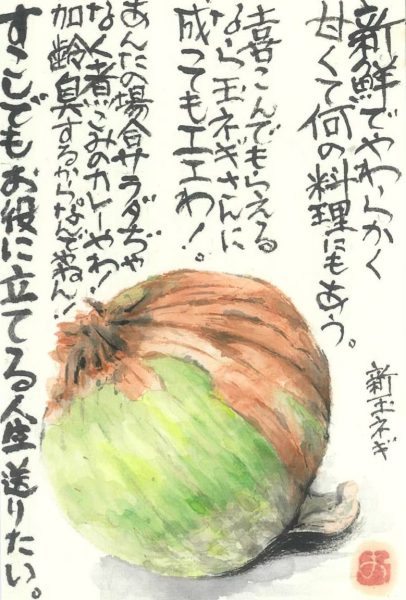 新鮮でやわらかく
甘くて何の料理にもあう。
喜こんでもらえる
なら玉ネギさんに
成ってもエエわ！。
あんたの場合サラダぢゃ
なく煮こみのカレーやわ！
加齢臭するからなんでやねん！
すこしでもお役に立てる人生送りたい。
新玉ネギ
お